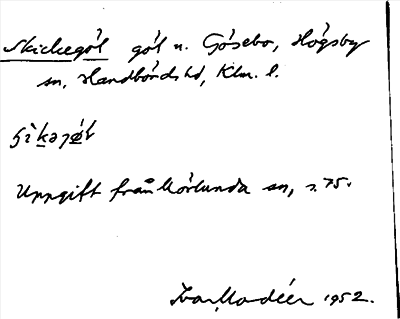 Skickegöl göl n. Gösebo, Högsby
sn, Handbörds hd, Klm. l.
Uppgift från Mörlunda sn, s. 75.
Ivar Modéer 1952.